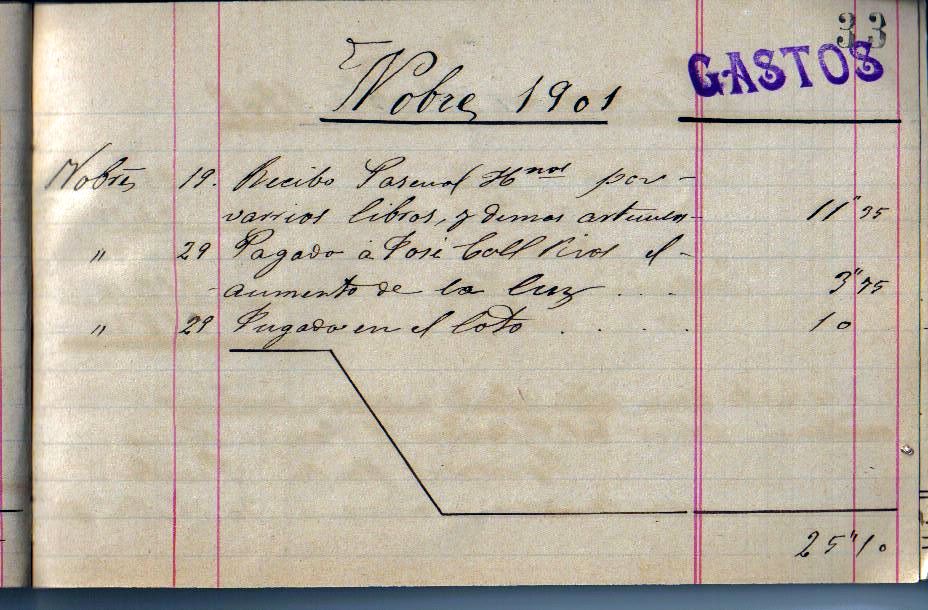 33
GASTOS
Nobre 1901
Nobre 19. Recibo Pascual Hnos por -
varios libros, y demas articulos - 11"35
" 29 Pagado à José Coll Rios el -
- aumento de la luz . . . 3"75
" 29 Jugado en el loto . . . . . 10
25"10